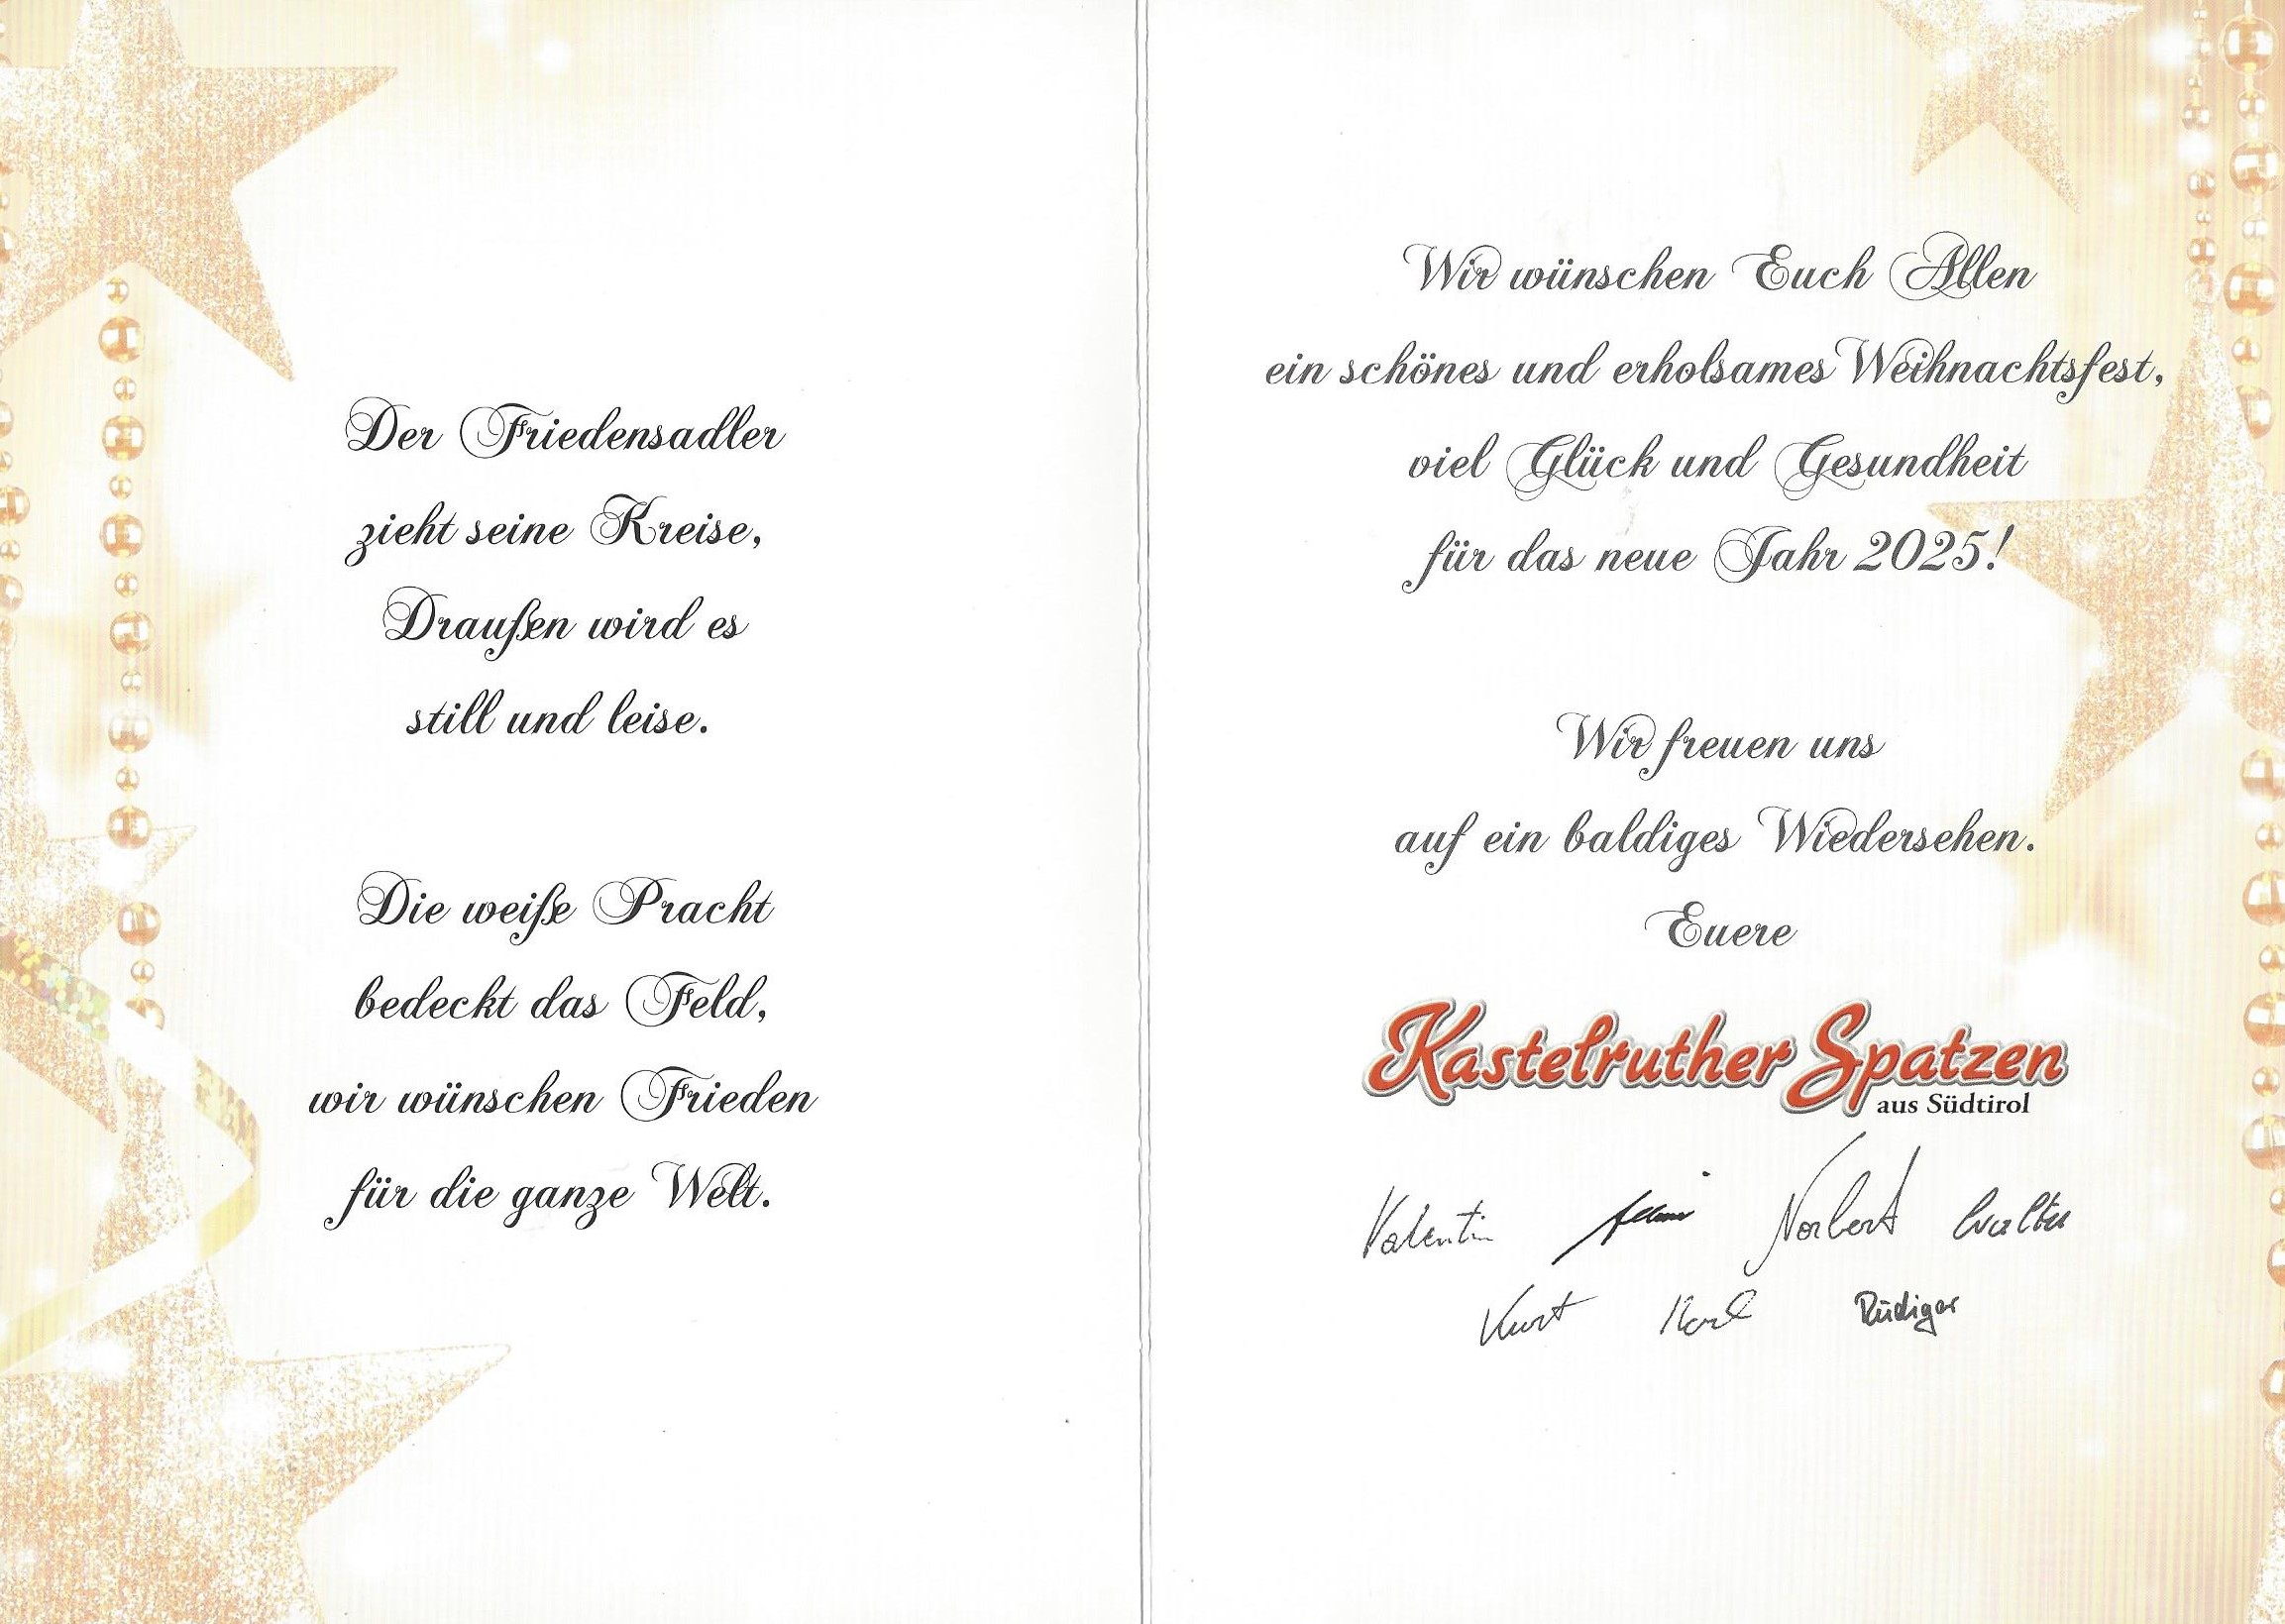 Der Friedensadler
zieht seine Kreise,
Draußen wird es
still und leise.
Die weiße Pracht
bedeckt das Feld,
wir wünschen Frieden
für die ganze Welt.
Wir wünschen Euch Allen
ein schönes und erholsames Weihnachtsfest,
viel Glück und Gesundheit
für das neue Jahr 2025!
Wir freuen uns
auf ein baldiges Wiedersehen.
Euere
Kastelruther Spatzen
aus Südtirol
Valentin Norbert Walter
Kurt Karl Rüdiger